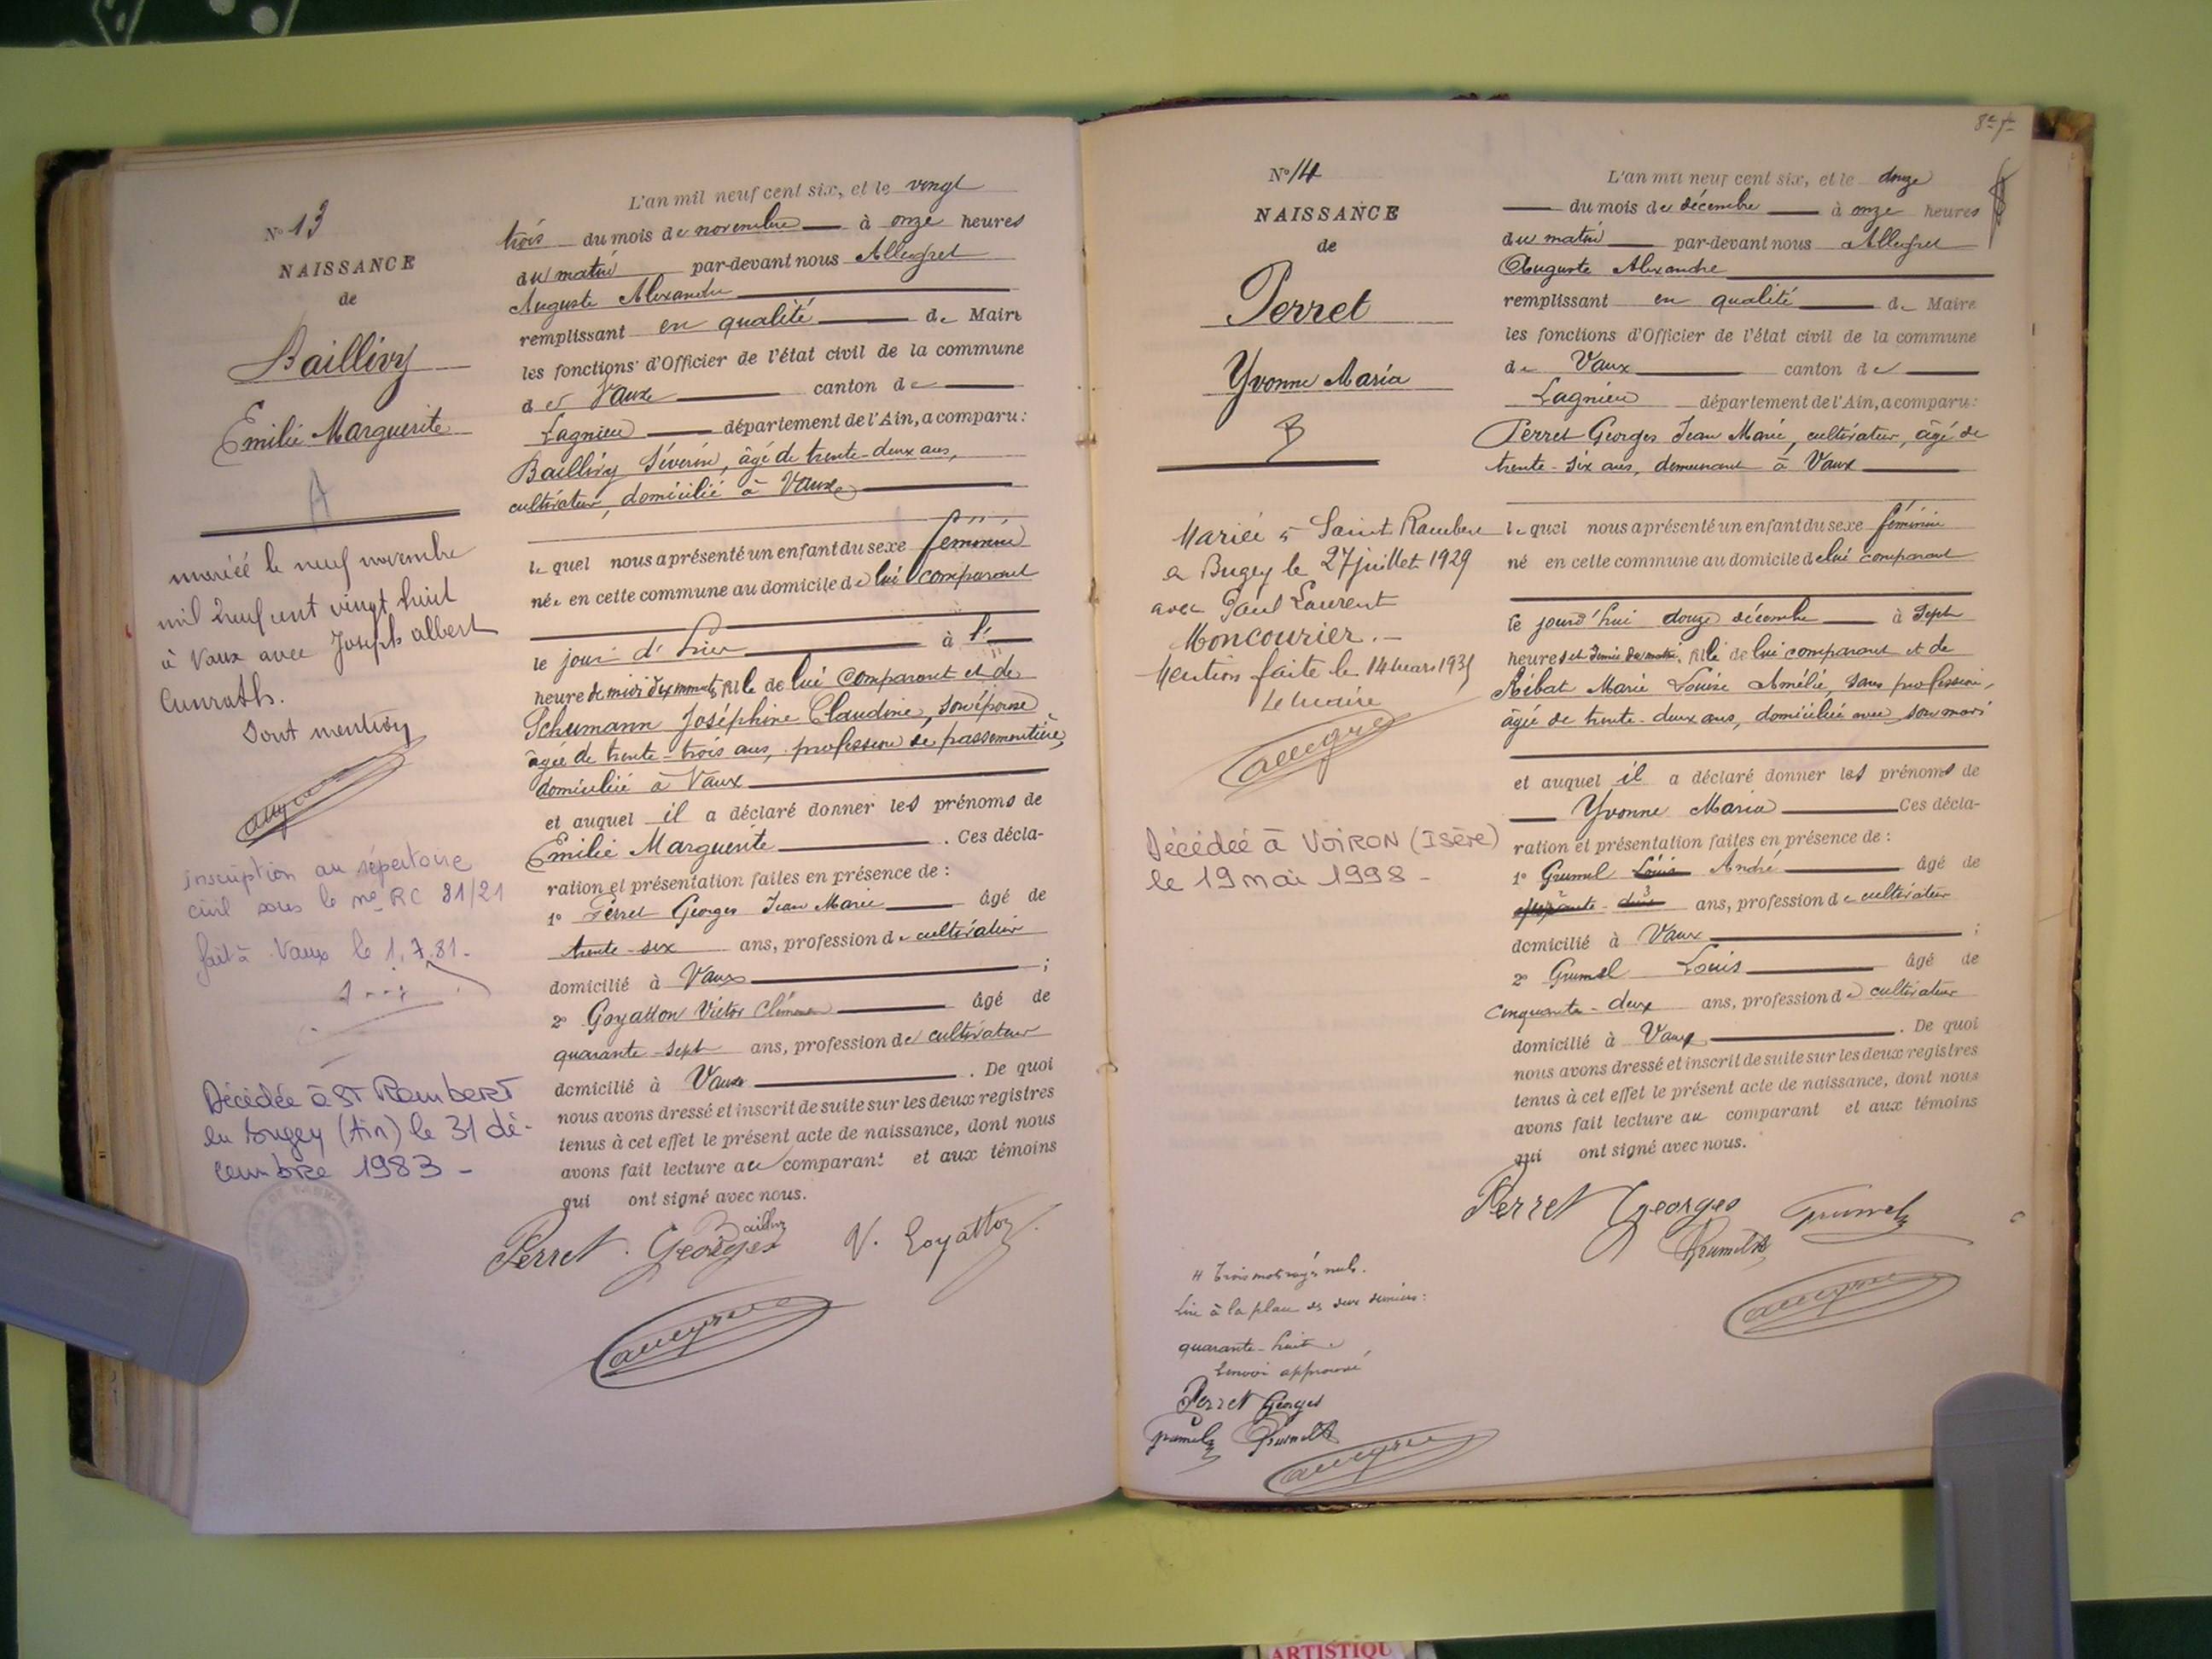 N° 13
NAISSANCE
de
Baillivy
Emilie Marguerite
A
mariée le neuf novembre
mil neuf cent vingt huit
à Vaux avec Joseph Albert
Cunrath.
Dont mention
Inscription au répertoire
civil sous le no RC 81/21
fait à Vaux le 1.7.81.
Décédée à ST Rambert
en Bugey (Ain) le 31 dé-
cembre 1983 -
L'an mil neuf cent six, et le vingt
trois du mois de novembre à onze heures
du matin par-devant nous Allegret
Auguste Alexandre
remplissant en qualité de Maire
les fonctions d'Officier de l'état civil de la commune
de Vaux canton de
Lagnieu département de l'Ain, a comparu:
Baillivy Séverin, âgé de trente-deux ans,
cultivateur, domicilié à Vaux
lequel nous a présenté un enfant du sexe féminin
née en cette commune au domicile de lui comparant
le jour d'hier à l'
heure de midi dix minutes, fille de lui comparant et de
Schumann Joséphine Claudine, son épouse
âgée de trente-trois ans, profession de passementière,
domiciliée à Vaux
et auquel il a déclaré donner les prénoms de
Emilie Marguerite. Ces décla-
ration et présentation faites en présence de :
1° Perret Georges Jean Marie âgé de
trente-six ans, profession de cultivateur
domicilié à Vaux ;
2° Goyatton Victor Clément âgé de
quarante-sept ans, profession de cultivateur
domicilié à Vaux. De quoi
nous avons dressé et inscrit de suite sur les deux registres
tenus à cet effet le présent acte de naissance, dont nous
avons fait lecture au comparant et aux témoins
qui ont signé avec nous.
Baillivy
Perret Georges V. Goyatton
Allegret
8e f
N° 14
NAISSANCE
de
Perret
Yvonne Maria
B
Mariée à Saint Rambert
en Bugey le 27 juillet 1929
avec Paul Laurent
Moncourier.-
Mention faite le 14 mars 1931
Le maire
Allegret
Décédée à VOIRON (Isère)
le 19 mai 1998 -
L'an mil neuf cent six, et le douze
du mois de décembre à onze heures
du matin par-devant nous Allegret
Auguste Alexandre
remplissant en qualité de Maire
les fonctions d'Officier de l'état civil de la commune
de Vaux canton de
Lagnieu département de l'Ain, a comparu:
Perret Georges Jean Marie, cultivateur, âgé de
trente-six ans, demeurant à Vaux
lequel nous a présenté un enfant du sexe féminin
né en cette commune au domicile de lui comparant
le jourd'hui douze décembre à sept
heures et demie du matin, fille de lui comparant et de
Ribat Marie Louise Amélie, sans profession,
âgée de trente-deux ans, domiciliée avec son mari
et auquel il a déclaré donner les prénoms de
Yvonne Maria Ces décla-
ration et présentation faites en présence de :
1° Grumel Louis André âgé de
ans, profession de cultivateur
domicilié à Vaux ;
2° Grumel Louis âgé de
cinquante-deux ans, profession de cultivateur
domicilié à Vaux. De quoi
nous avons dressé et inscrit de suite sur les deux registres
tenus à cet effet le présent acte de naissance, dont nous
avons fait lecture au comparant et aux témoins
qui ont signé avec nous.
Perret Georges Grumel
Grumel
Allegret
# Trois mots rayés nuls.
Lire à la place des deux derniers:
quarante-huit.
Renvoi approuvé
Perret Georges
Grumel Grumel
Allegret
ARTISTIQU